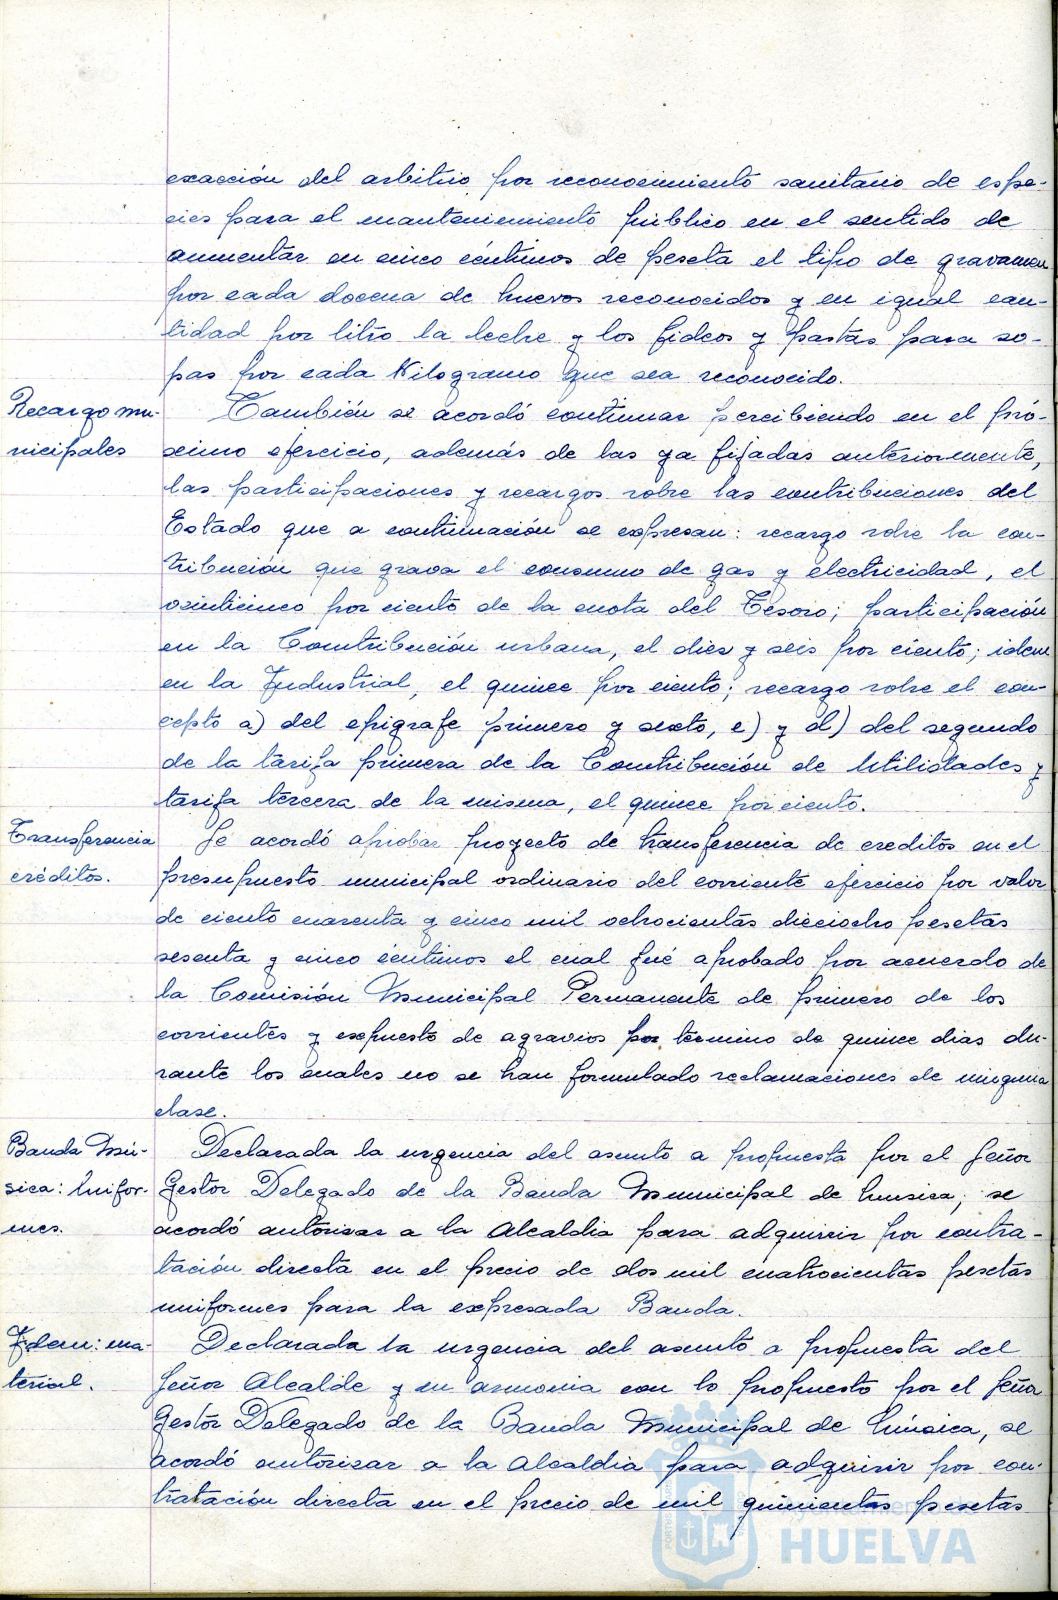 exacción del arbitrio por reconocimiento sanitario de espe-
cies para el mantenimiento público en el sentido de
aumentar en cinco céntimos de peseta el tipo de gravamen
por cada docena de huevos reconocidos y en igual can-
tidad por litro la leche y los fideos y pastas para so-
pas por cada Kilogramo que sea reconocido.
Recargo mu-
nicipales
También se acordó continuar percibiendo en el pró-
ximo ejercicio, además de las ya fijadas anteriormente,
las participaciones y recargos sobre las contribuciones del
Estado que a continuación se expresan: recargo sobre la con-
tribución que grava el consumo de gas y electricidad, el
veinticinco por ciento de la cuota del Tesoro; participación
en la Contribución urbana, el diez y seis por ciento; idem
en la Industrial, el quince por ciento; recargo sobre el con-
cepto a) del epígrafe primero y sexto, c) y d) del segundo
de la tarifa primera de la Contribución de Utilidades y
tarifa tercera de la misma, el quince por ciento.
Transferencia
créditos.
Se acordó aprobar proyecto de transferencia de creditos en el
presupuesto municipal ordinario del corriente ejercicio por valor
de ciento cuarenta y cinco mil ochocientas dieciocho pesetas
sesenta y cinco céntimos el cual fué aprobado por acuerdo de
la Comisión Municipal Permanente de primero de los
corrientes y expuesto de agravios por término de quince dias du-
rante los cuales no se han formulado reclamaciones de ninguna
clase.
Banda Mú-
sica: Unifor-
mes.
Declarada la urgencia del asunto a propuesta por el Señor
Gestor Delegado de la Banda Municipal de música, se
acordó autorizar a la Alcaldia para adquirir por contra-
tación directa en el precio de dos mil cuatrocientas pesetas
uniformes para la expresada Banda.
Idem: ma-
terial.
Declarada la urgencia del asunto a propuesta del
Señor Alcalde y en armonia con lo propuesto por el Señor
Gestor Delegado de la Banda Municipal de Música, se
acordó autorizar a la Alcaldia para adquirir por con-
tratación directa en el precio de mil quinientas pesetas
HUELVA